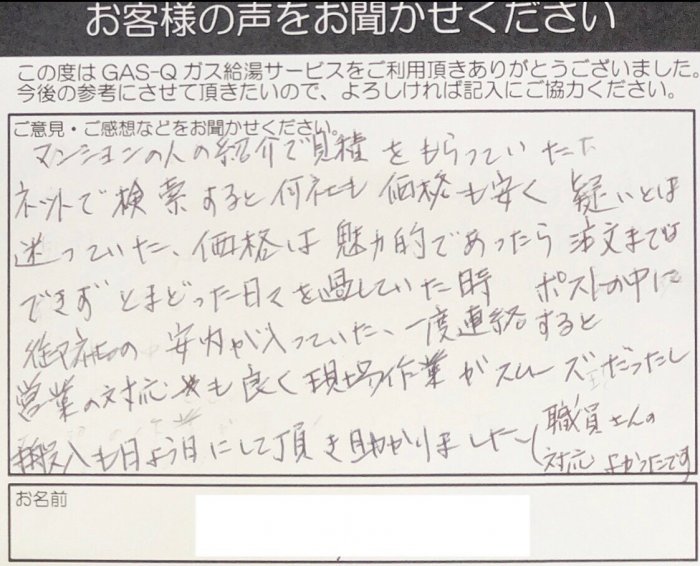 お客様の声をお聞かせください
この度はGAS-Qガス給湯サービスをご利用頂きありがとうございました。
今後の参考にさせて頂きたいので、よろしければ記入にご協力ください。
ご意見・ご感想などをお聞かせください。
マンションの人の紹介で見積をもらっていたた
ネットで検索すると何社も価格も安く 疑いとは
迷っていた、価格は魅力的であったら注文までは
できず とまどった日々を過していた時 ポストの中に
御社の 安内が入っていた、一度連絡すると
営業の対応も良く現場作業がスムーズだったし
搬入も日よう日にして頂き助かりました
(職員さんの
対応 よかったです
お名前